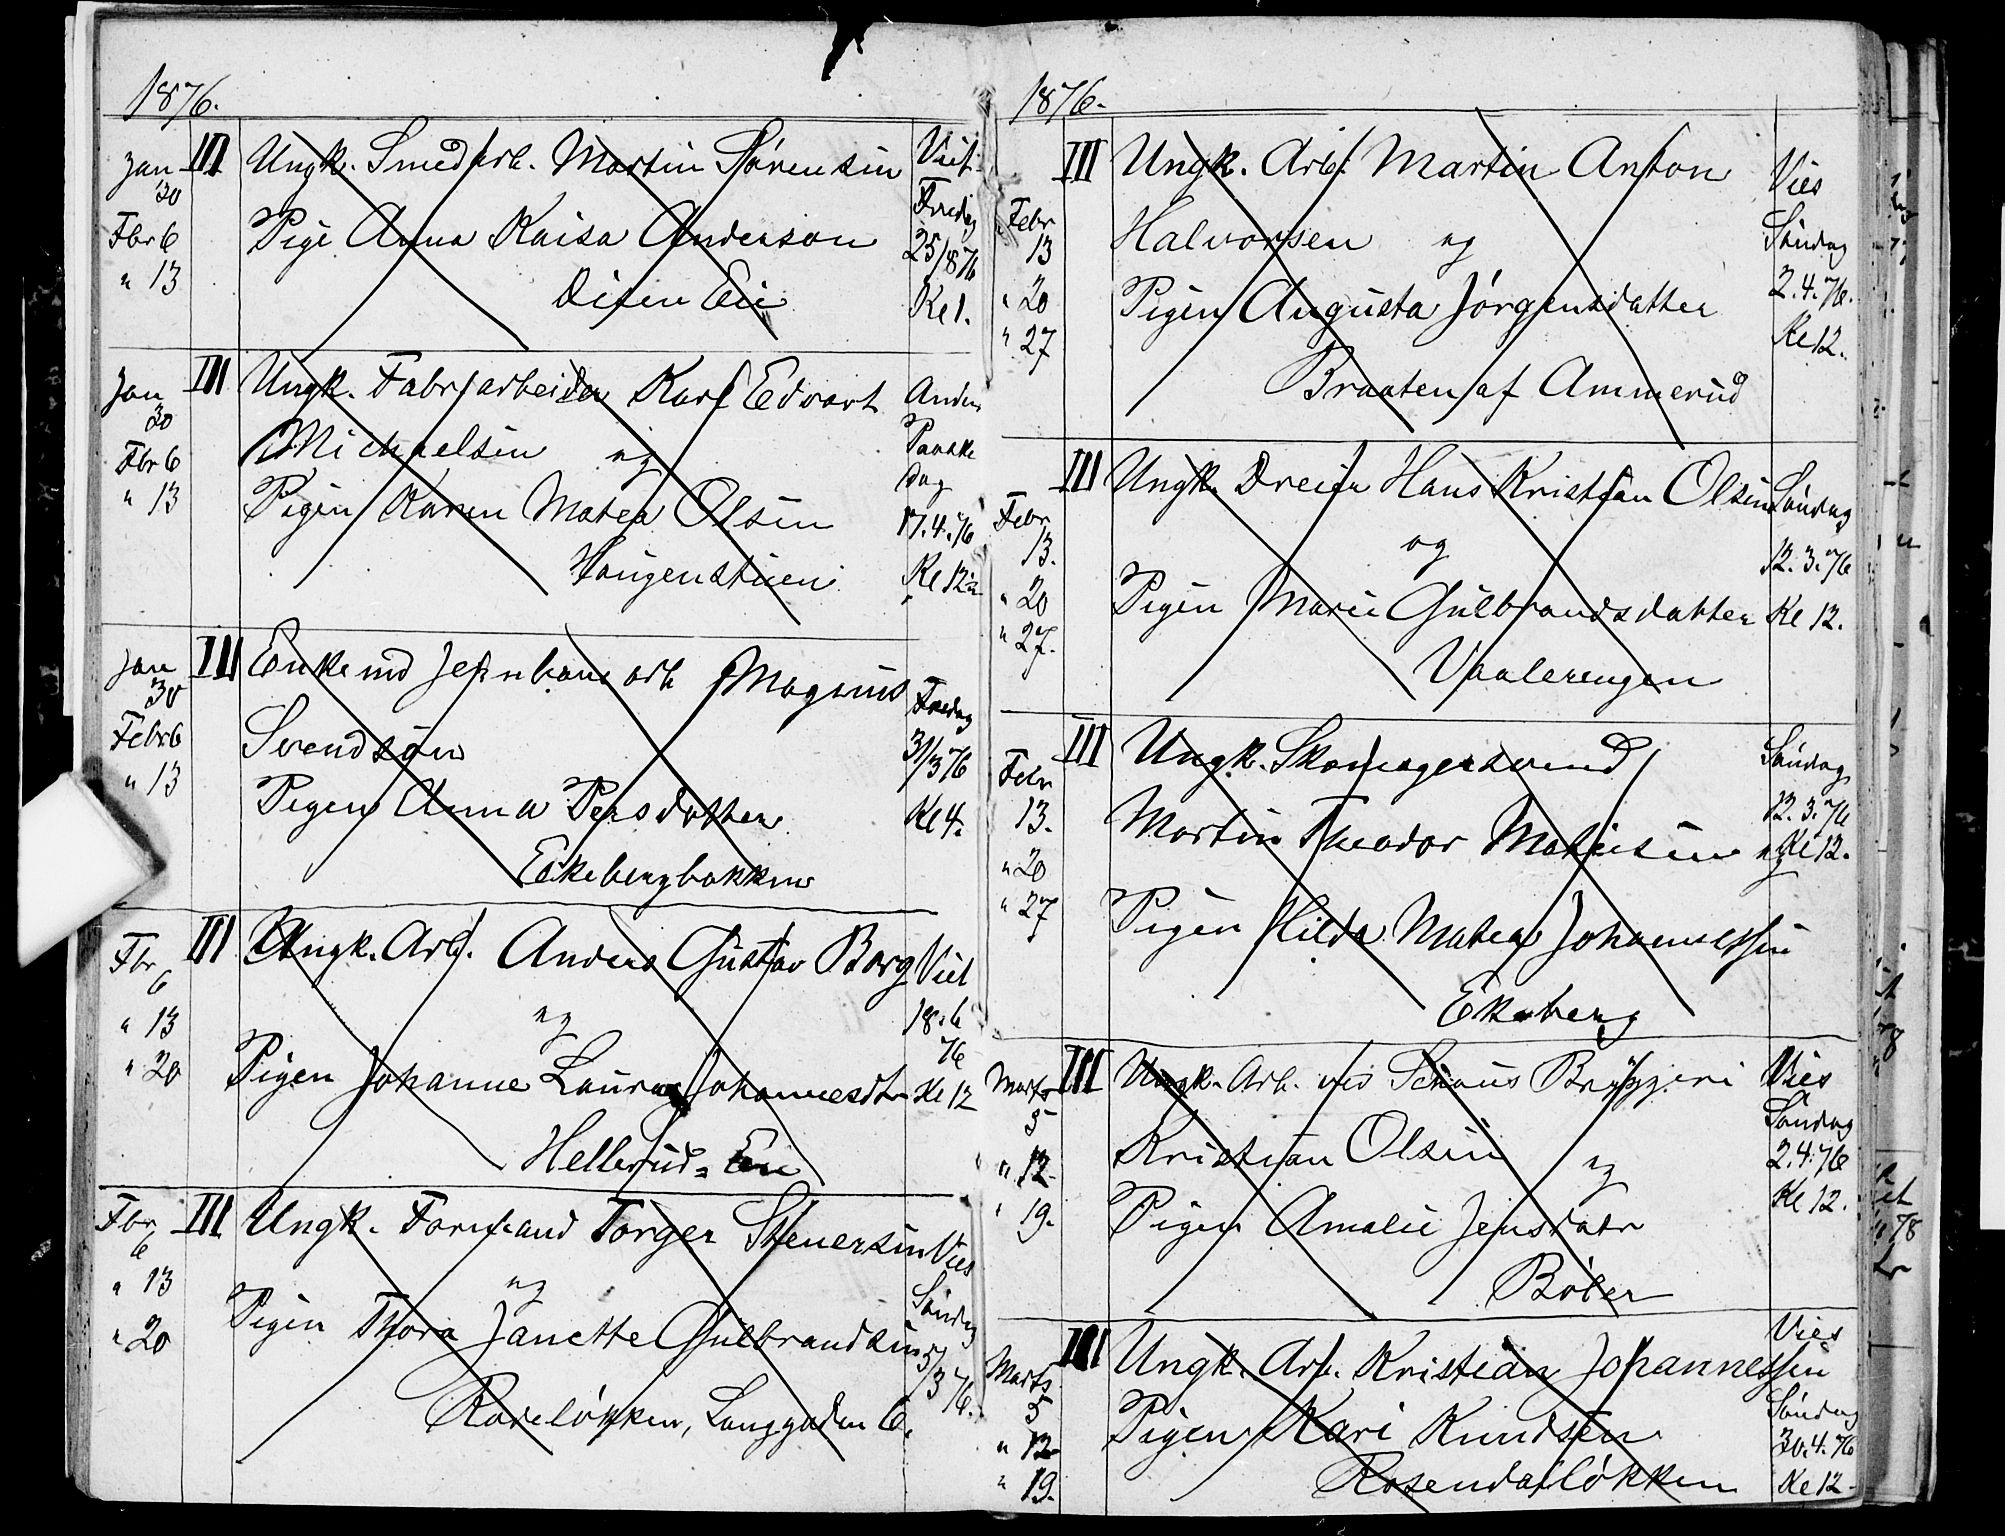 1876.
Jan 30 III Ungk. Smedarb. Martin Sørensen Viet
Fredag
Fbr 6 Pige Anna Kaisa Anderson 25/8 76
" 13 Disen Eie Kl 1.
Jan 30 III Ungk. Fabrikarbeider Karl Edvart Anden
Michaelsen og Paaske
Fbr 6 dag
" 13 Pigen Karen Matea Olsen 17.4.76
Haugenstuen Kl 12
Jan 30 III Enkemd Jernbane arb Magnus Fredag
Febr 6 Svendsøn 31/3 76
" 13 Pigen Anna Persdatter Kl 4.
Eekebergbakken
Fbr 6 III Ungk. Arb. Anders Gustav Borg Viet
" 13 og 18.6 76
" 20 Pigen Johanne Laura Johannesdtr Kl 12
Hellerud = Eie
Fbr 6 III Ungk. Torger Stenersen Vies
" 13 og Søndag
" 20 Pigen Thora Janette Gulbrandsen 5/3 76.
Rodeløkken, Langgaden 6.
1876.
III Ungk. Arb. Martin Anton Vies
Febr 13 Halvorsen og Søndag
" 20 Pigen Augusta Jørgensdatter 2.4.76.
" 27 Kl 12.
Braaten af Ammerud
III Ungk. Dreier Hans Kristian Olsen Søndag
Febr 13. og 12.3.76
" 20 Pigen Marie Gulbrandsdatter Kl 12.
" 27. Vaalerengen
III Ungk. Skomagersvend Søndag
Febr 13. Martin Theodor Mathisen og 12.3.76
" 20 Kl 12.
" 27 Pigen Hilda Matea Johannessen
Ekeberg
Marts 5 III Ungk. Arb. ved Schous Bryggeri Vies
Søndag
" 12 Kristian Olsen og 2.4.76
" 19. Pigen Amalie Jensdatr Kl 12.
Bøler
Marts 5 III Ungk. Arb. Kristian Johannessen Vies
Søndag
" 12 Pigen Kari Knudsen 30.4.76
" 19. Rosendalløkken Kl 12.